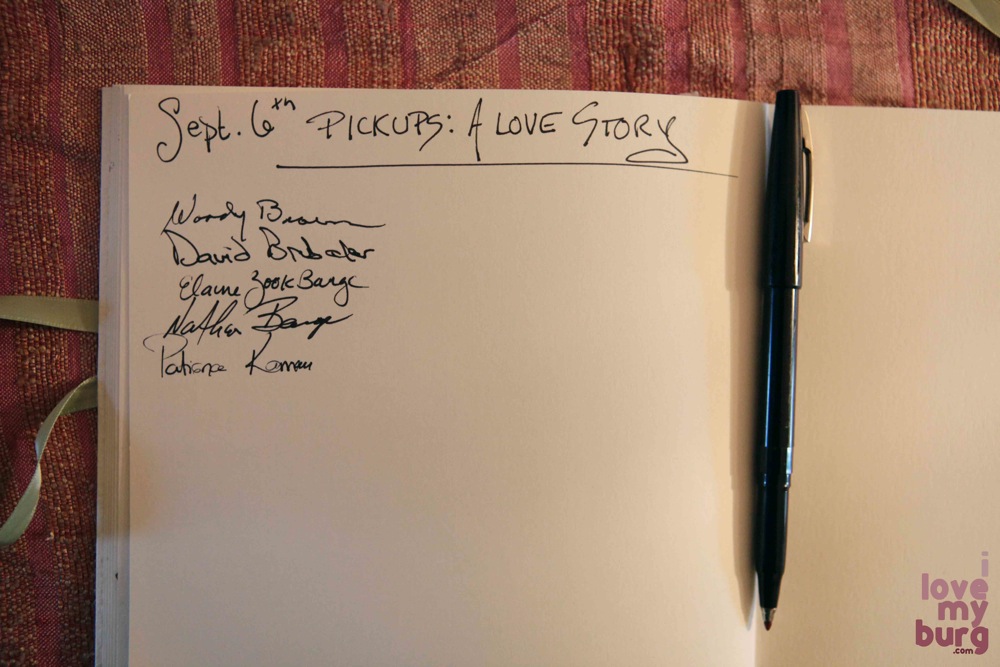 Sept. 6th PICKUPS: A LOVE STORY
Woody Brown
David Brubaker
Elaine Zook Barge
Nathan Barge
Patience Kamau
i
love
my
burg
.com